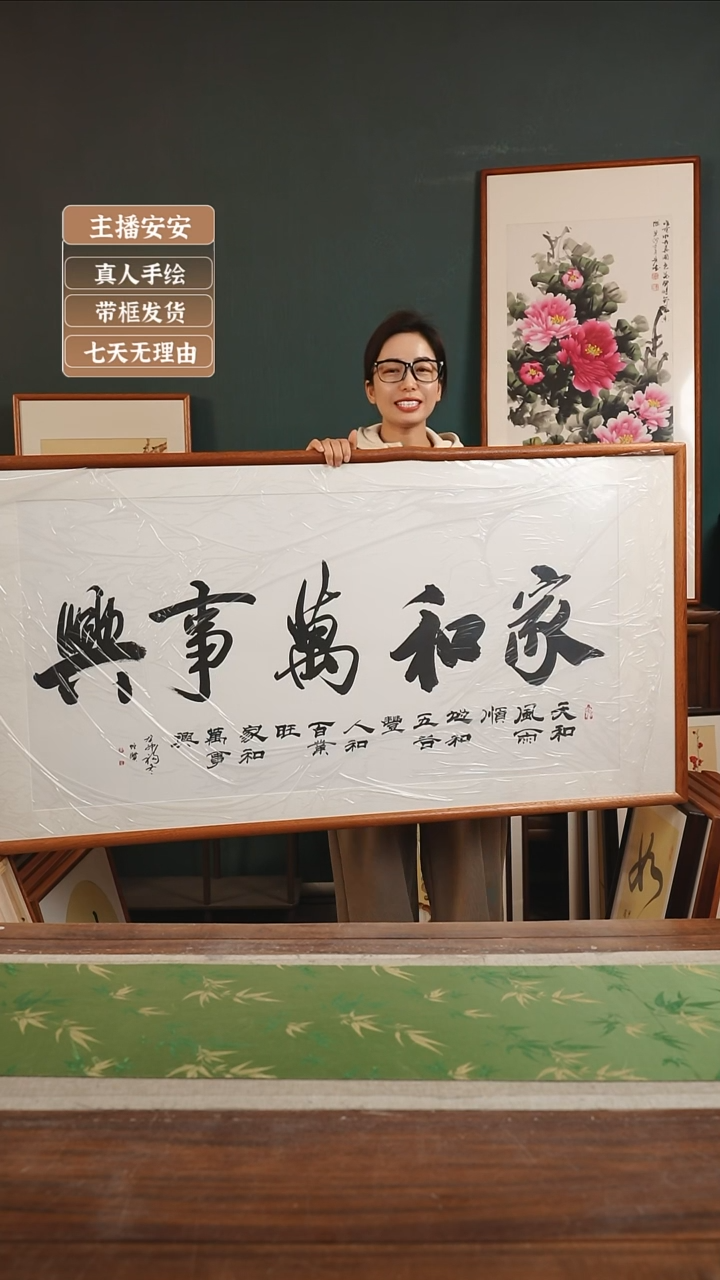 主播安安
真人手绘
带框发货
七天无理由
家和萬事興
天和
風雨
順
地和
五谷
豐
人和
百業
旺
家和
萬事
興